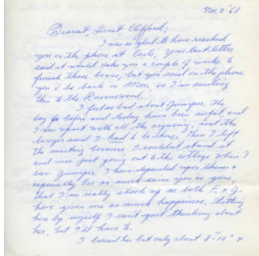 Nov. 2 '68
Dearest, Sweet Clifford,
I was so glad to have reached
you on the phone at Earls'. Your last letter
said it would take you a couple of weeks to
finish those boxes, but you said on the phone
you'd be back on Mon., so I'm sending
this to the
I feel so bad about Juniper. The
day before and today have been awful and
I'm upset with all the arguing. and the
lawyer said I had to be there. Then I left
the meeting because I couldn't stand it
and was just going out to the cottage when I
saw Juniper. I have depended upon them &
especially her so much since you've gone,
that I'm really shook up as both F. & J.
have given me so much happiness. Sitting
here by myself I can't quit thinking about
her, but I'll have to.
I buried her but only about 8"-10" &